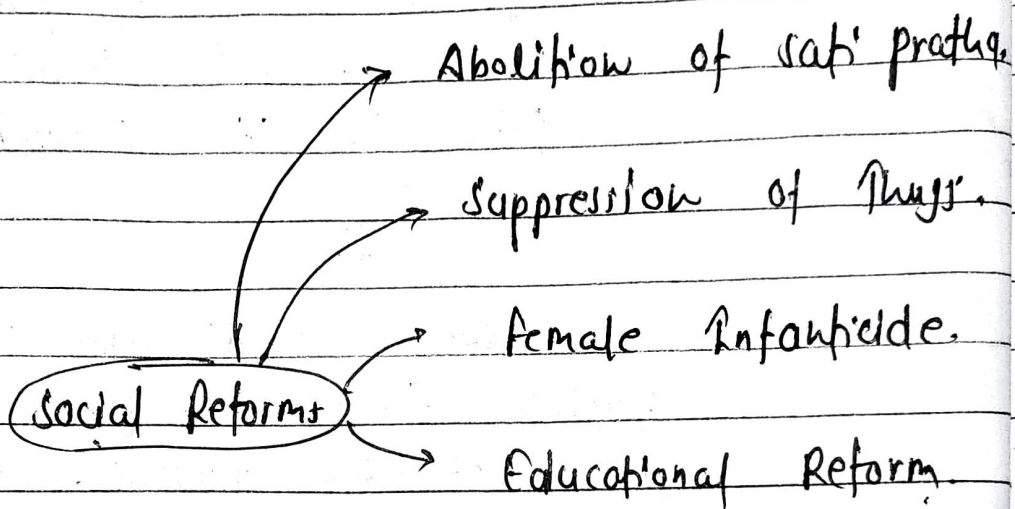 Abolition of sati pratha.
Suppression of Thugs.
Female Infanticide.
Social Reforms
Educational Reform.